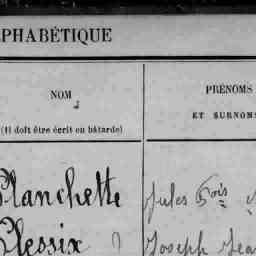 PHABÉTIQUE
NOM
(Il doit être écrit en bâtarde)
PRÉNOMS
ET SURNOMS
Planchette
Jules Fois
Plessix
Joseph Jean